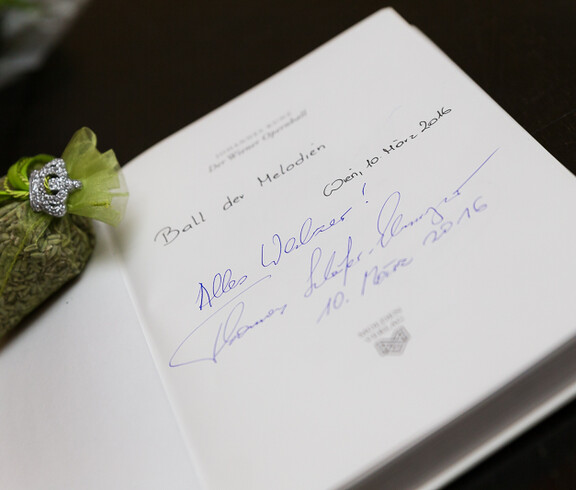 JOHANNES KUNZ
Der Wiener Opernball
Ball der Melodien
Wien, 10 März 2016
Alles Walzer!
Thomas Schäfer-Elmayer
10. März 2016